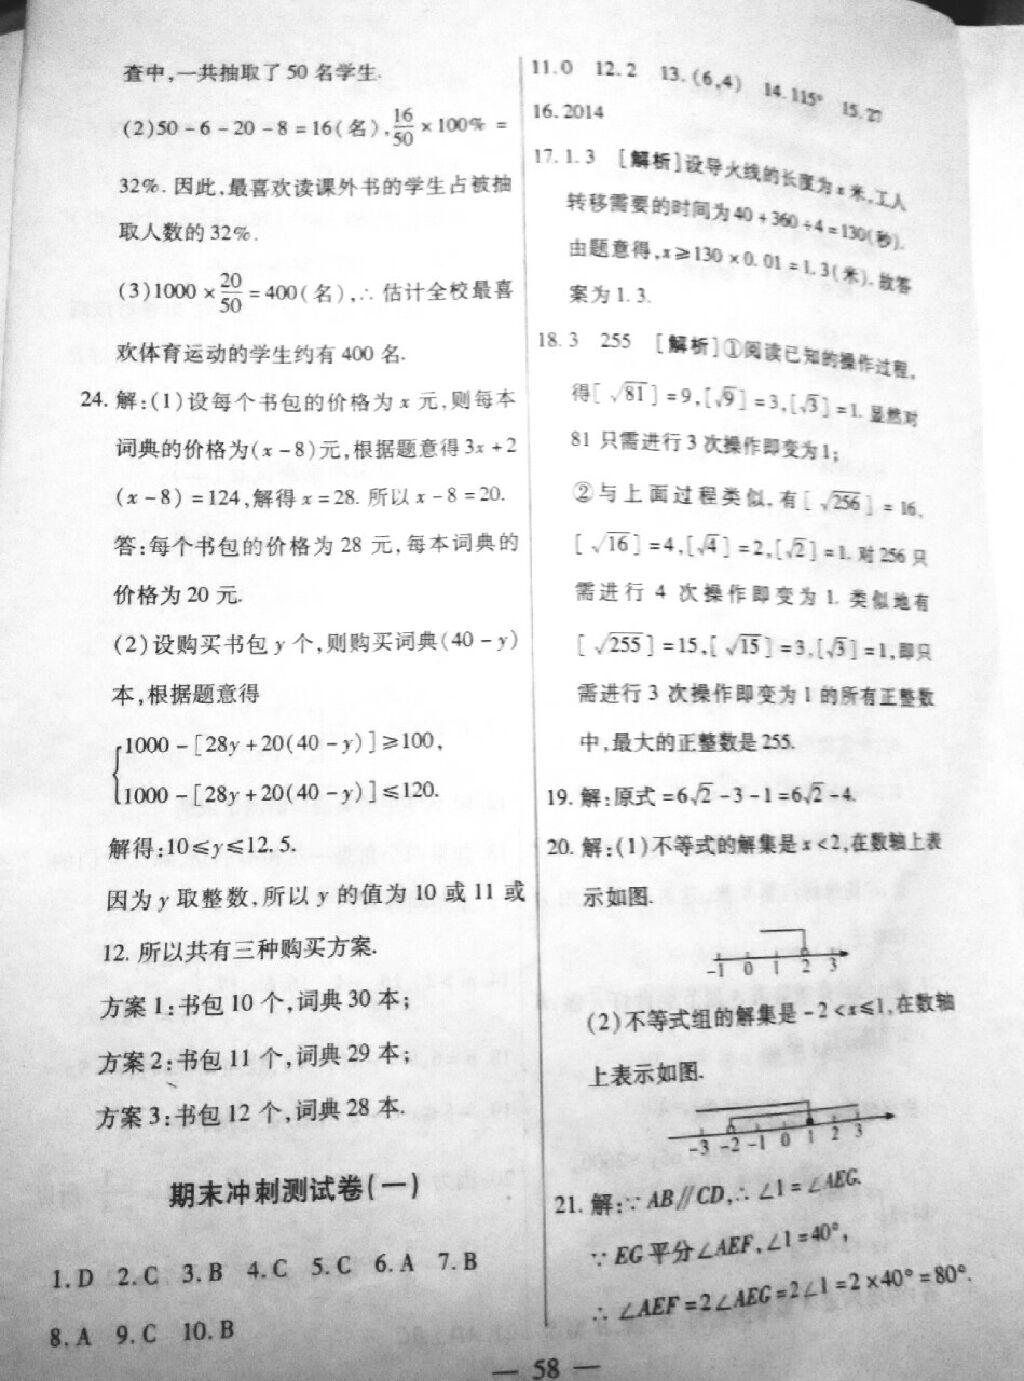 查中,一共抽取了50名学生.
(2)50-6-20-8=16(名),16/50×100%=
32%.因此,最喜欢读课外书的学生占被抽
取人数的32%.
(3)1000×20/50=400(名),∴估计全校最喜
欢体育运动的学生约有400名.
24.解:(1)设每个书包的价格为x元,则每本
词典的价格为(x-8)元,根据题意得3x+2
(x-8)=124,解得x=28.所以x-8=20.
答:每个书包的价格为28元,每本词典的
价格为20元.
(2)设购买书包y个,则购买词典(40-y)
本,根据题意得
1000-[28y+20(40-y)]≥100,
1000-[28y+20(40-y)]≤120.
解得:10≤y≤12.5.
因为y取整数,所以y的值为10或11或
12.所以共有三种购买方案.
方案1:书包10个,词典30本;
方案2:书包11个,词典29本;
方案3:书包12个,词典28本.
期末冲刺测试卷(一)
1.D 2.C 3.B 4.C 5.C 6.A 7.B
8.A 9.C 10.B
11.0 12.2 13.(6,4) 14.115° 15.27
16.2014
17.1.3 [解析]设导火线的长度为x米,工人
转移需要的时间为40+360÷4=130(秒).
由题意得,x≥130×0.01=1.3(米).故答
案为1.3.
18.3 255 [解析]①阅读已知的操作过程,
得[√81]=9,[√9]=3,[√3]=1.显然对
81只需进行3次操作即变为1;
②与上面过程类似,有[√256]=16,
[√16]=4,[√4]=2,[√2]=1.对256只
需进行4次操作即变为1.类似地有
[√255]=15,[√15]=3,[√3]=1,即只
需进行3次操作即变为1的所有正整数
中,最大的正整数是255.
19.解:原式=6√2-3-1=6√2-4.
20.解:(1)不等式的解集是x<2,在数轴上表
示如图.
-1 0 1 2 3
(2)不等式组的解集是-2<x≤1,在数轴
上表示如图.
-3 -2 -1 0 1 2 3
21.解:∵AB∥CD,∴∠1=∠AEG.
∵EG平分∠AEF,∠1=40°,
∴∠AEF=2∠AEG=2∠1=2×40°=80°.
— 58 —